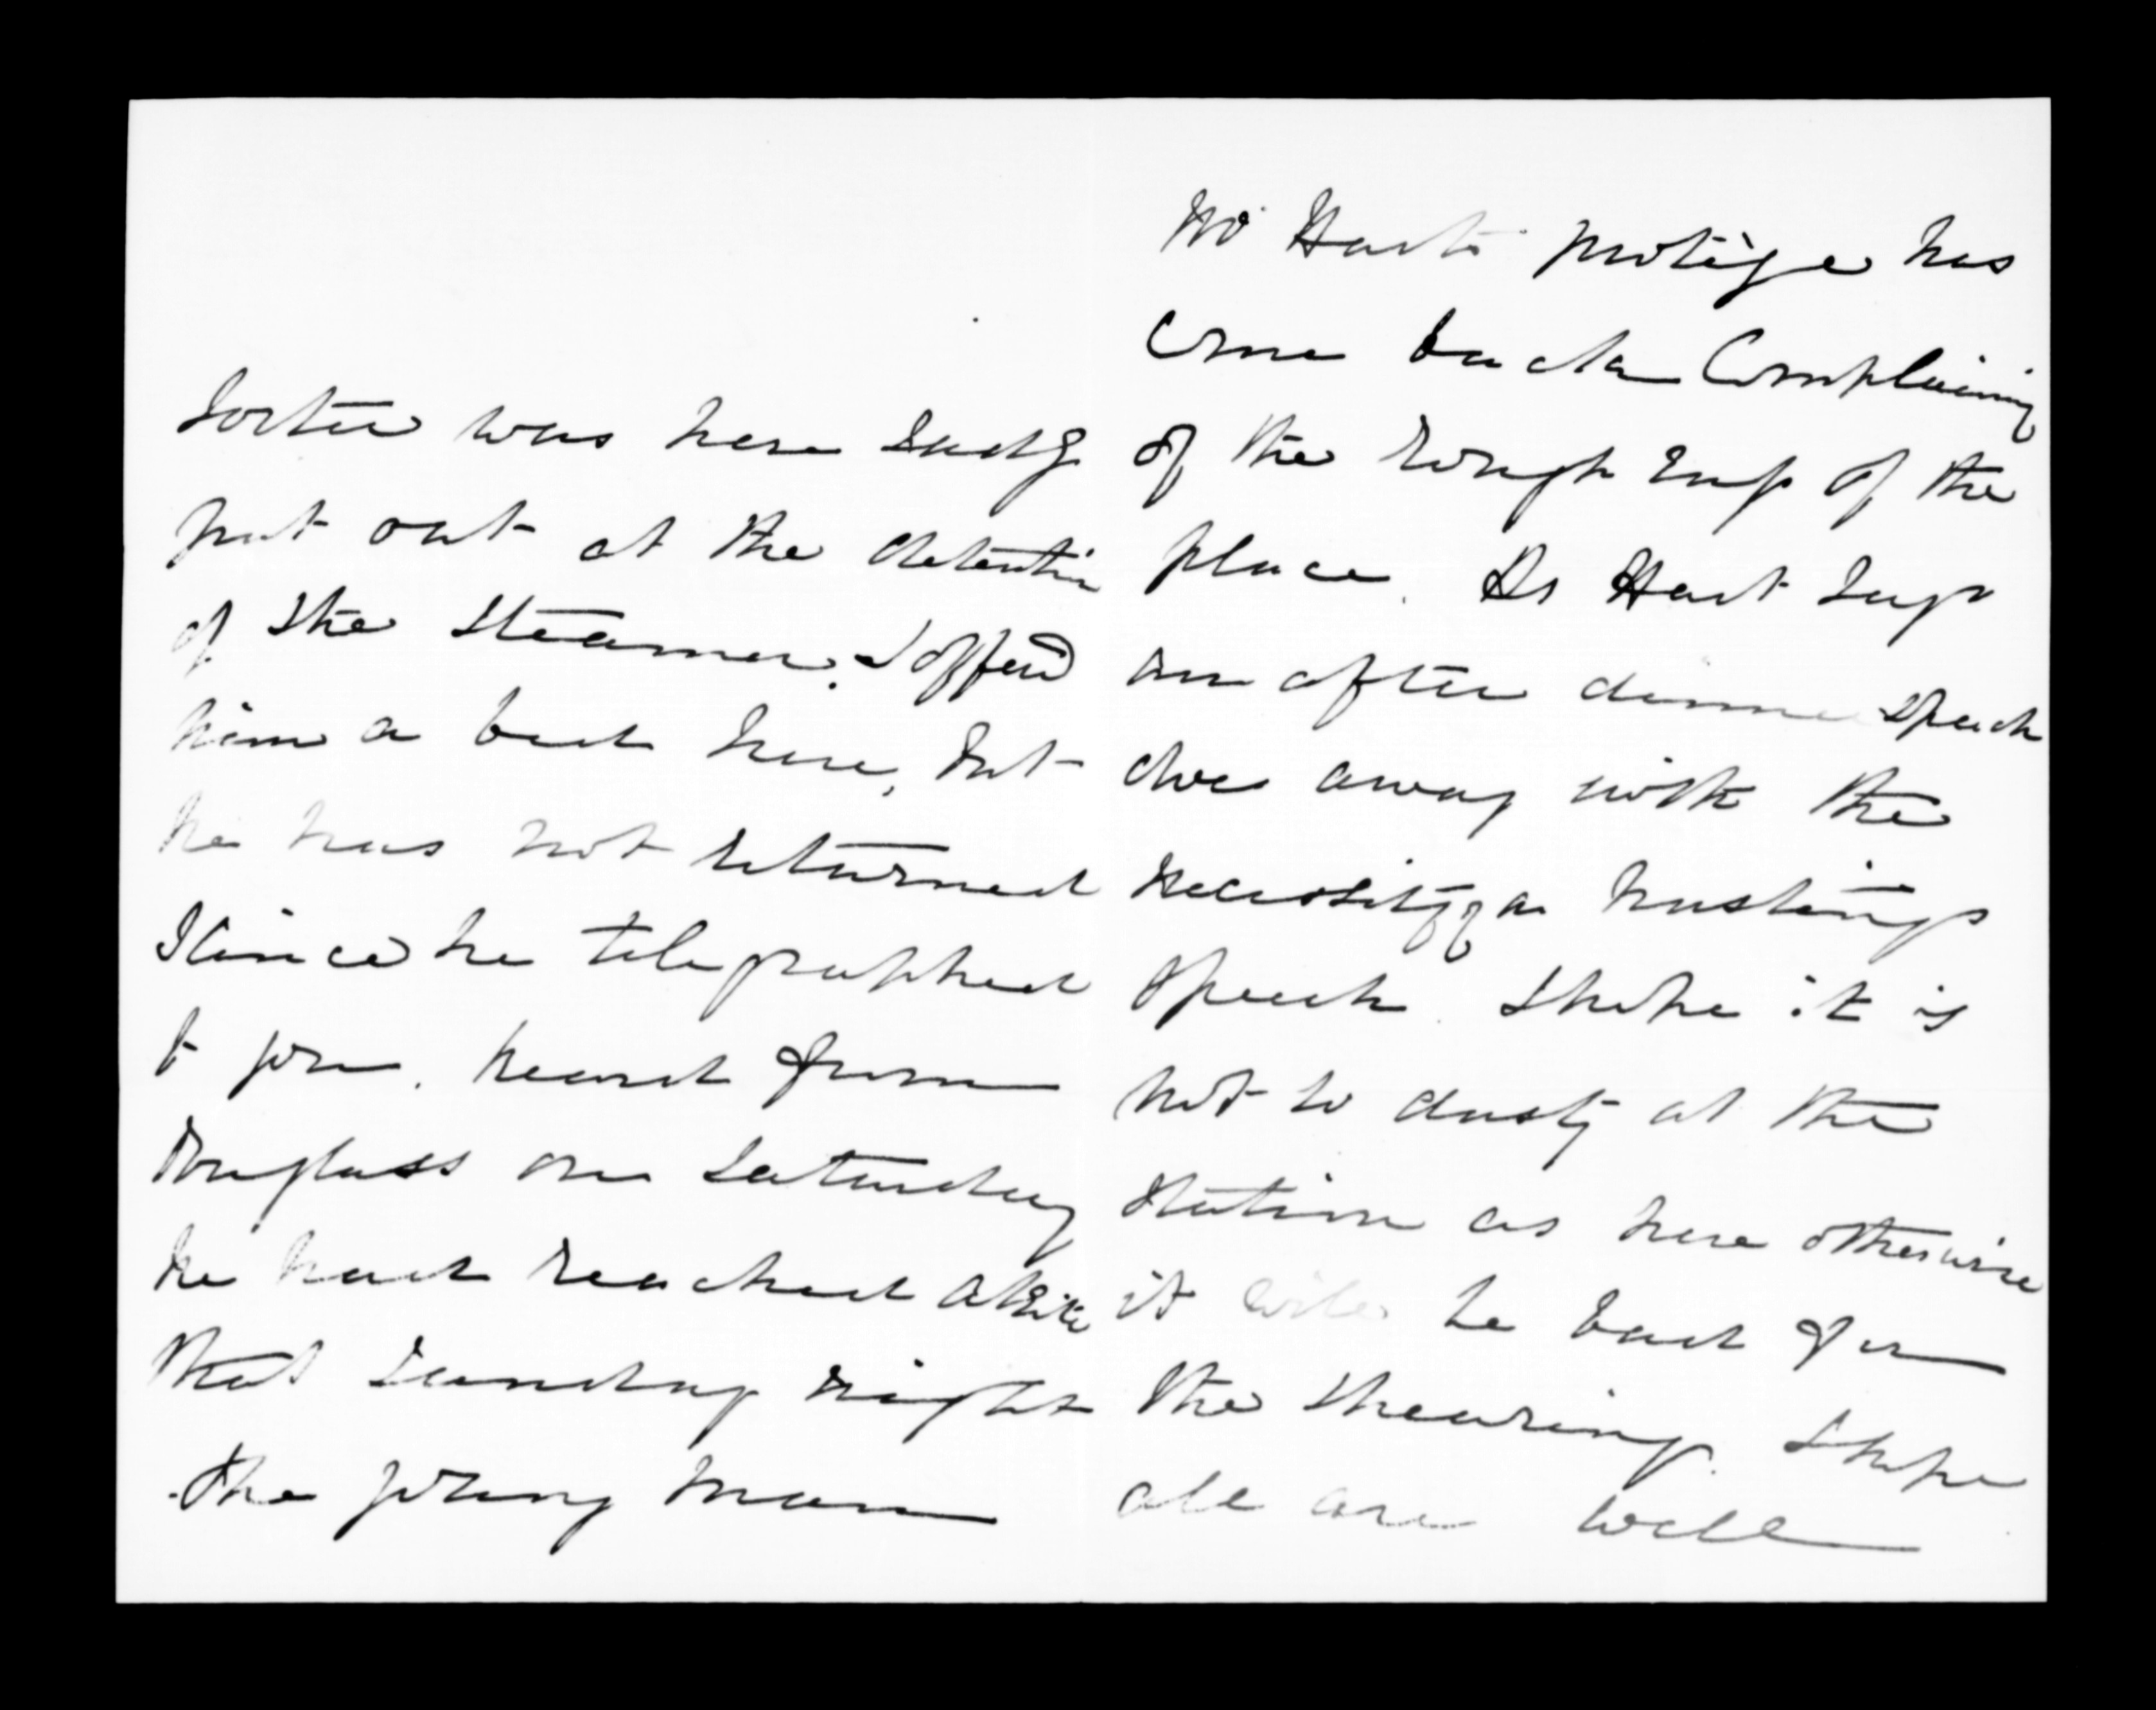 was here sadly
put out at the detention
of the Steamer. I offerd
him a bed here, but
he has not returned
since he telegraphed
to you. heard from
Douglass on Saturday
he had reached
that Sunday night
the young man
Mr Harts protège has
come back Complaining
of the rough ways of the
place. Dr Hart says
an after dinner speech
does away with the
necessity of a hustings
speech. I hope it is
not so dusty at the
station as here otherwise
it will be bad for
the shearing. I hope
all are well